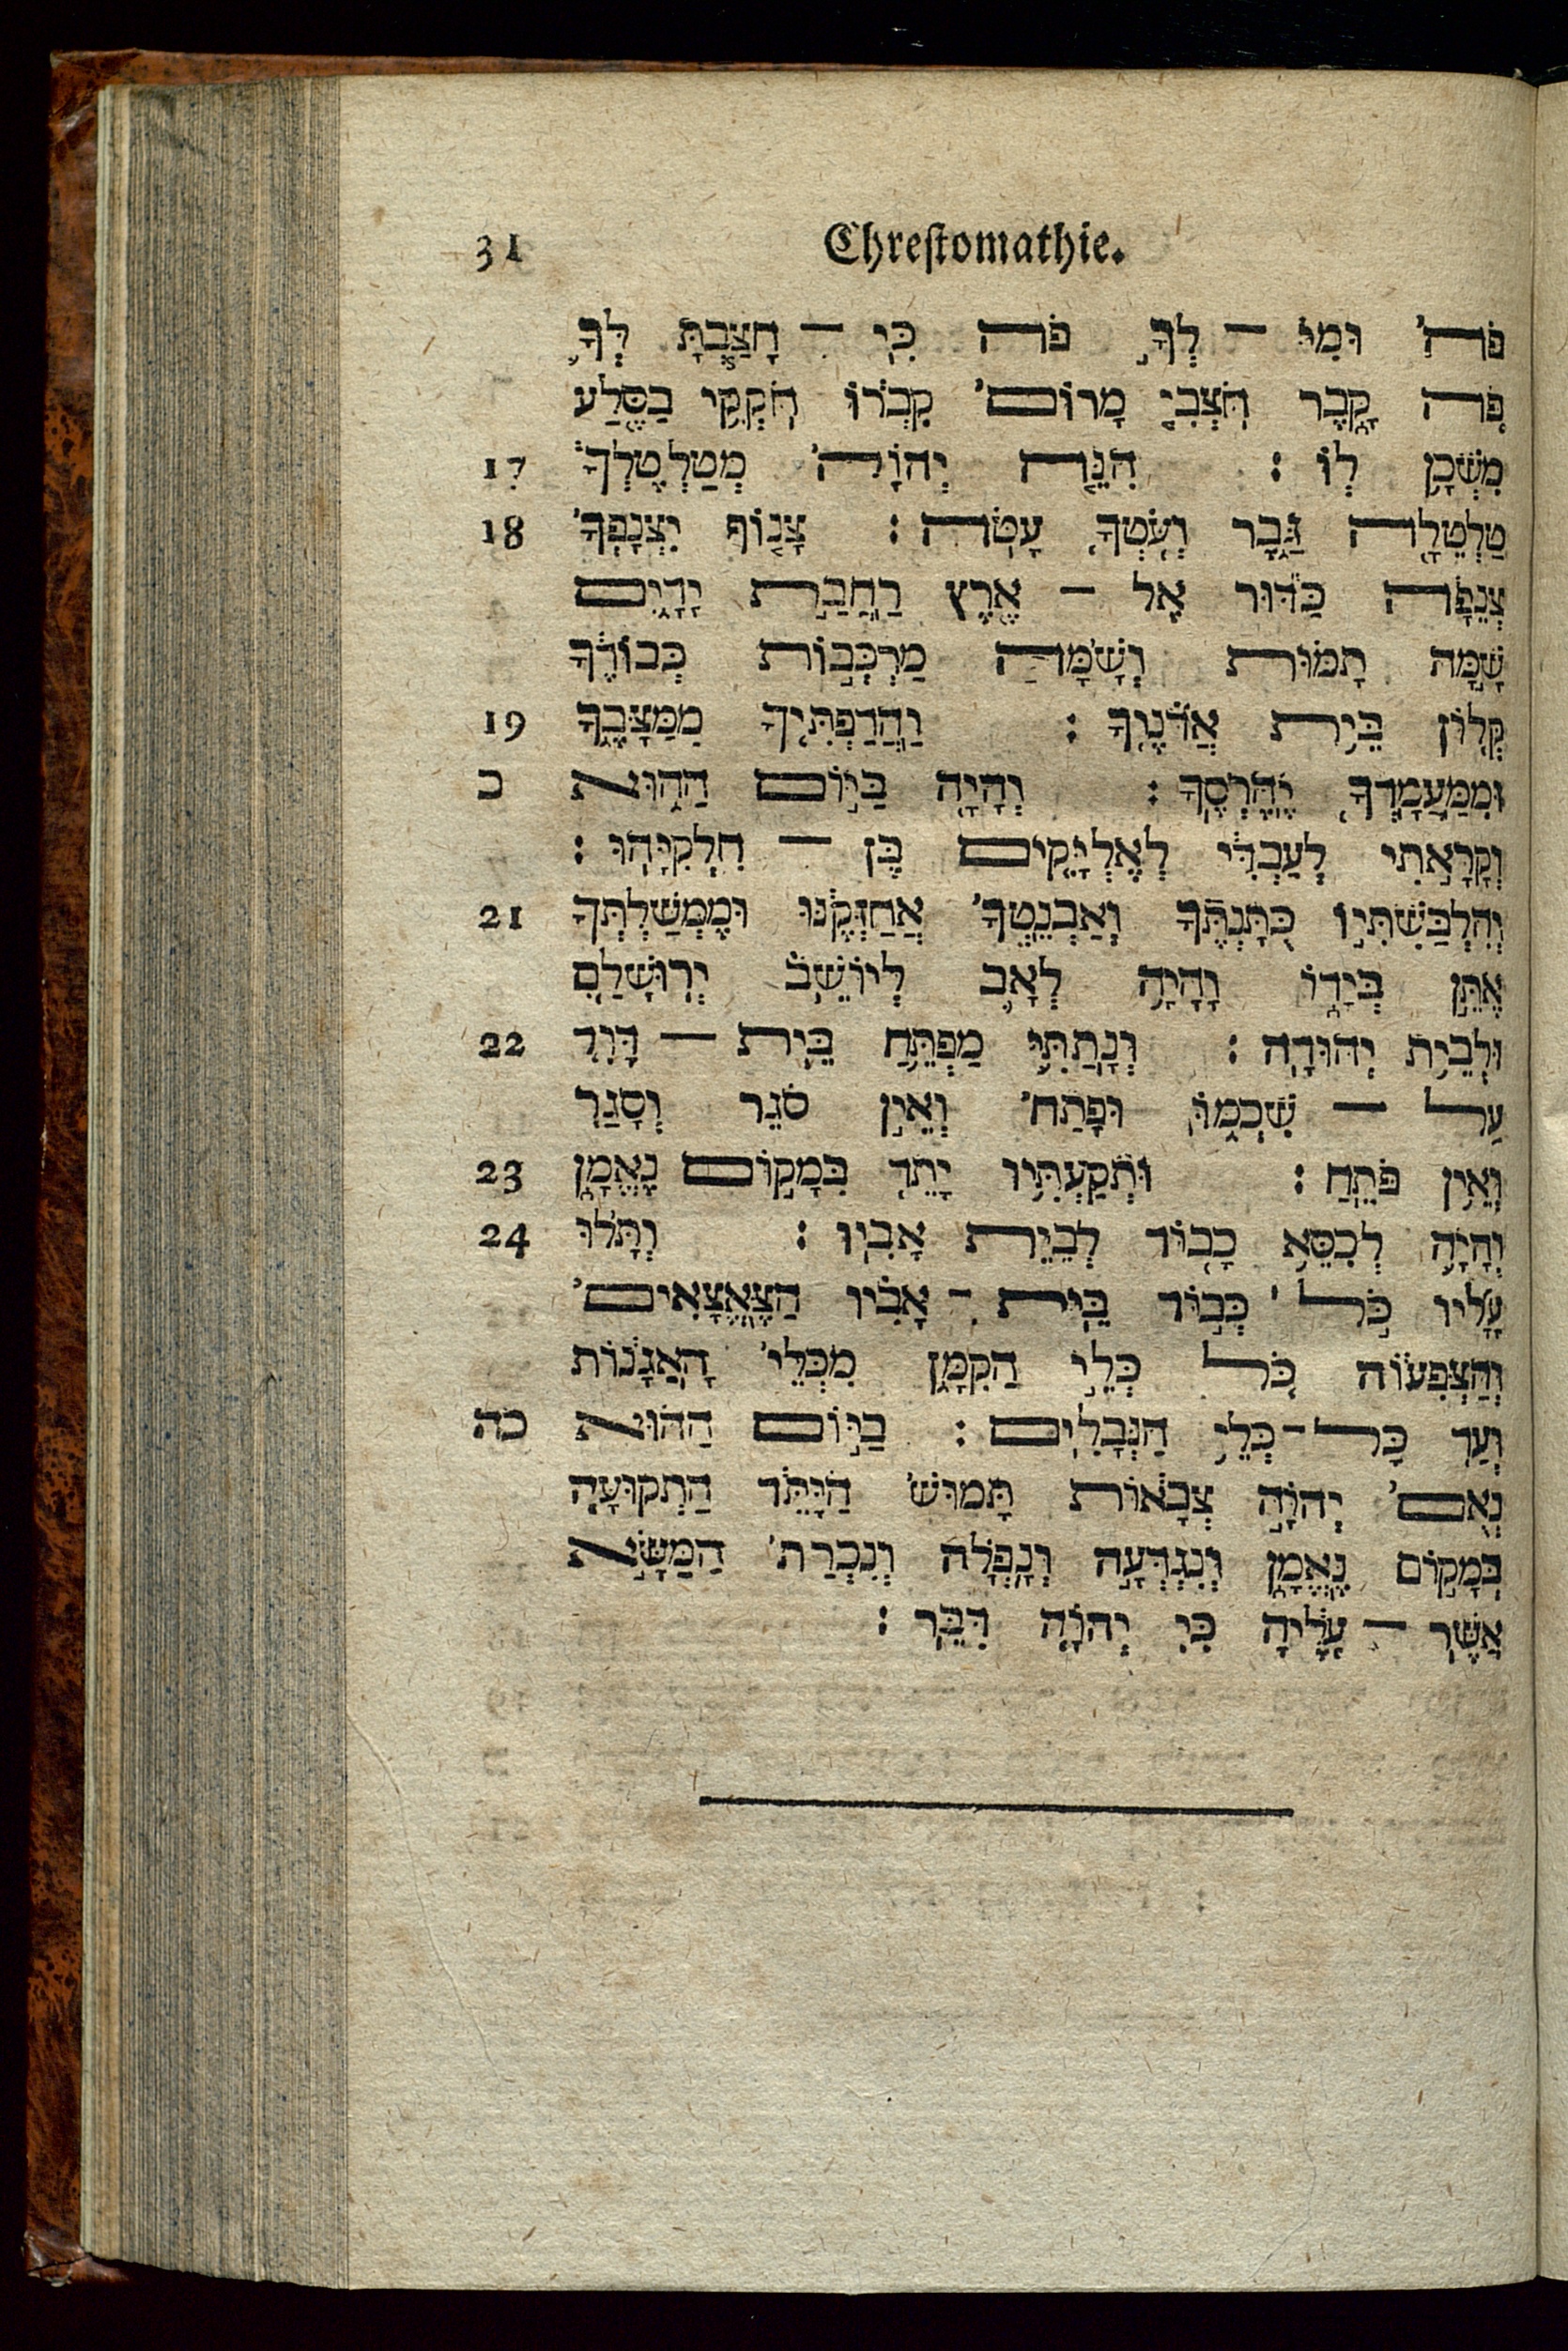 31 Chreſtomathie.
פֹה֙ וּמִי־לְךָ֣ פֹה כִּֽי־חָצַ֧בְתָּ לְּךָ֛
פֹּ֖ה קָ֑בֶר חֹצְבִ֤י מָרוֹם֙ קִבְר֔וֹ חֹקְקִ֥י בַסֶּ֖לַע
מִשְׁכָּ֥ן לֽוֹ׃ הִנֵּ֤ה יְהוָה֙ מְטַלְטֶלְךָ֔ 17
טַלְטֵלָ֖ה גָּ֑בֶר וְעֹטְךָ֖ עָטֹֽה׃ צָנ֤וֹף יִצְנָפְךָ֙ 18
צְנֵפָ֔ה כַּדּ֕וּר אֶל־אֶ֖רֶץ רַחֲבַ֣ת יָדָ֑יִם
שָׁ֣מָּה תָמ֗וּת וְשָׁ֙מָּה֙ מַרְכְּב֣וֹת כְּבוֹדֶ֔ךָ
קְל֖וֹן בֵּ֥ית אֲדֹנֶֽיךָ׃ וַהֲדַפְתִּ֖יךָ מִמַּצָּבֶ֑ךָ 19
וּמִמַּעֲמָדְךָ֖ יֶהֶרְסֶֽךָ׃ וְהָיָ֖ה בַּיּ֣וֹם הַה֑וּא כ
וְקָרָ֣אתִי לְעַבְדִּ֔י לְאֶלְיָקִ֖ים בֶּן־חִלְקִיָּֽהוּ׃
וְהִלְבַּשְׁתִּ֣יו כֻּתָּנְתֶּ֗ךָ וְאַבְנֵֽטְךָ֙ אֲחַזְּקֶ֔נּוּ וּמֶֽמְשַׁלְתְּךָ֖ 21
אֶתֵּ֣ן בְּיָד֑וֹ וְהָיָ֥ה לְאָ֛ב לְיוֹשֵׁ֥ב יְרוּשָׁלַ֖םִ
וּלְבֵ֥ית יְהוּדָֽה׃ וְנָתַתִּ֛י מַפְתֵּ֥חַ בֵּית־דָּוִ֖ד 22
עַל־שִׁכְמ֑וֹ וּפָתַח֙ וְאֵ֣ין סֹגֵ֔ר וְסָגַ֖ר
וְאֵ֥ין פֹּתֵֽחַ׃ וּתְקַעְתִּ֥יו יָתֵ֖ד בְּמָק֣וֹם נֶאֱמָ֑ן 23
וְהָיָ֛ה לְכִסֵּ֥א כָב֖וֹד לְבֵ֥ית אָבִֽיו׃ וְתָל֨וּ 24
עָלָ֜יו כֹּ֣ל ׀ כְּב֣וֹד בֵּית־אָבִ֗יו הַצֶּֽאֱצָאִים֙
וְהַצְּפִע֔וֹת כֹּ֖ל כְּלֵ֣י הַקָּטָ֑ן מִכְּלֵי֙ הָֽאַגָּנ֔וֹת
וְעַ֖ד כָּל־כְּלֵ֥י הַנְּבָלִֽים׃ בַּיּ֣וֹם הַה֗וּא כה
נְאֻם֙ יְהוָ֣ה צְבָא֔וֹת תָּמוּשׁ֙ הַיָּתֵ֔ד הַתְּקוּעָ֖ה
בְּמָק֣וֹם נֶאֱמָ֑ן וְנִגְדְּעָ֣ה וְנָפְלָ֗ה וְנִכְרַת֙ הַמַּשָּׂ֣א
אֲשֶׁר־עָלֶ֔יהָ כִּ֥י יְהוָ֖ה דִּבֵּֽר׃